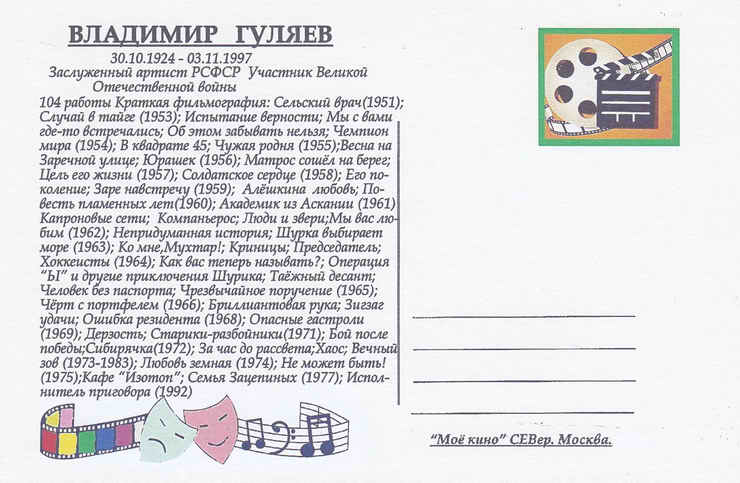 ВЛАДИМИР ГУЛЯЕВ
30.10.1924 - 03.11.1997
Заслуженный артист РСФСР Участник Великой
Отечественной войны
104 работы Краткая фильмография: Сельский врач(1951);
Случай в тайге (1953); Испытание верности; Мы с вами
где-то встречались; Об этом забывать нельзя; Чемпион
мира (1954); В квадрате 45; Чужая родня (1955);Весна на
Заречной улице; Юрашек (1956); Матрос сошёл на берег;
Цель его жизни (1957); Солдатское сердце (1958); Его по-
коление; Заре навстречу (1959); Алёшкина любовь; По-
весть пламенных лет(1960); Академик из Аскании (1961)
Капроновые сети; Компаньерос; Люди и звери;Мы вас лю-
бим (1962); Непридуманная история; Шурка выбирает
море (1963); Ко мне,Мухтар!; Криницы; Председатель;
Хоккеисты (1964); Как вас теперь называть?; Операция
"Ы" и другие приключения Шурика; Таёжный десант;
Человек без паспорта; Чрезвычайное поручение (1965);
Чёрт с портфелем (1966); Бриллиантовая рука; Зигзаг
удачи; Ошибка резидента (1968); Опасные гастроли
(1969); Дерзость; Старики-разбойники(1971); Бой после
победы;Сибирячка(1972); За час до рассвета;Хаос; Вечный
зов (1973-1983); Любовь земная (1974); Не может быть!
(1975);Кафе "Изотоп"; Семья Зацепиных (1977); Испол-
нитель приговора (1992)
"Моё кино" СЕВер. Москва.